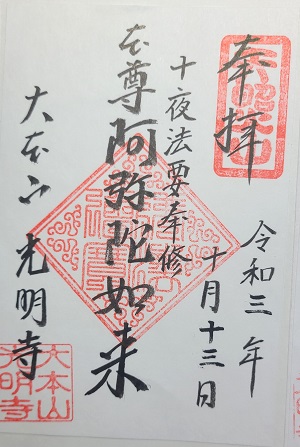 奉拝
令和三年
十月十三日
十夜法要奉修
本尊阿弥陀如来
大本山光明寺
大本山
光明寺